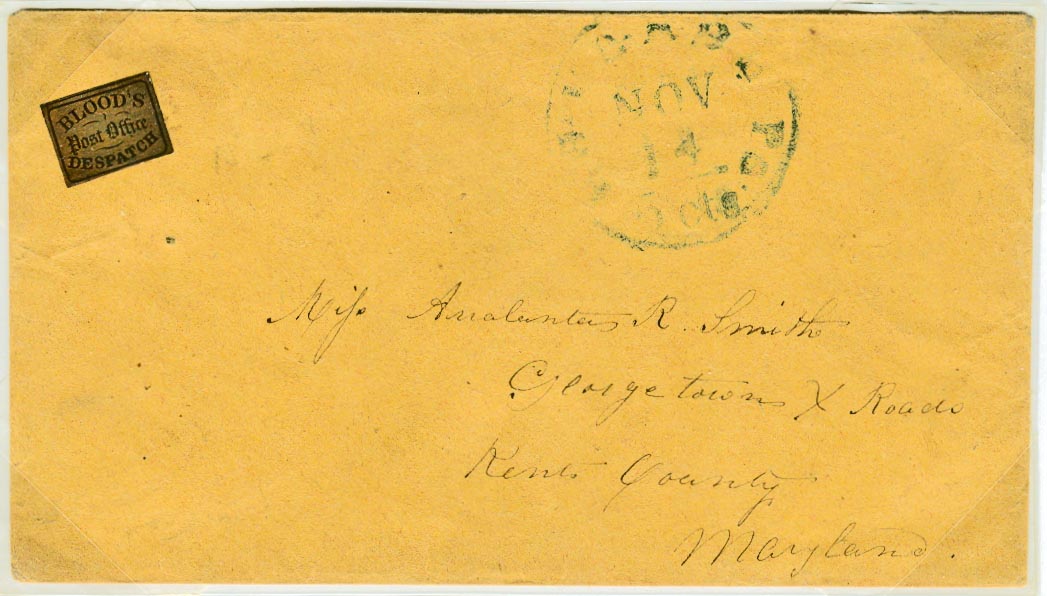 BLOOD'S
Post Office
DESPATCH
NOV
14
cts
Miss R. Smith
Georgetown X Roads
Kent County
Maryland.